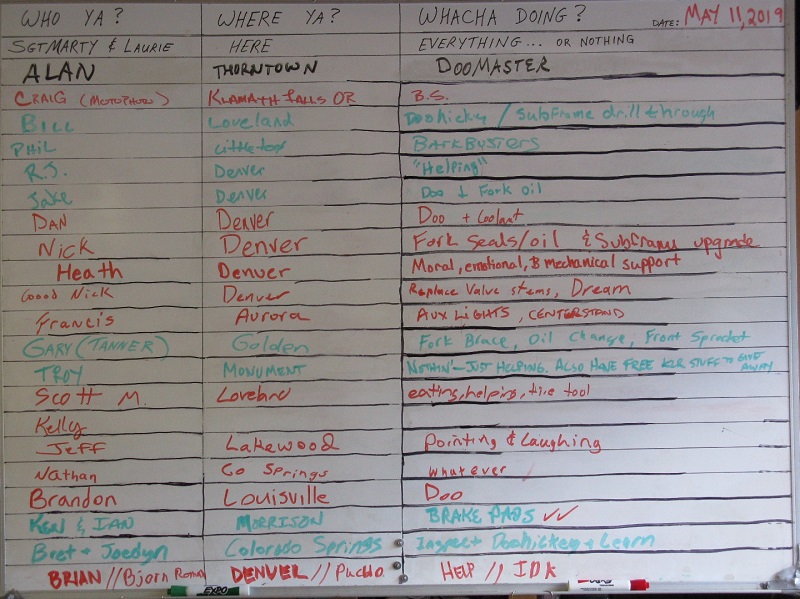 WHO YA? WHERE YA? WHACHA DOING? DATE: MAY 11, 2019
SGTMARTY & LAURIE HERE EVERYTHING... OR NOTHING
ALAN THORNTOWN DOOMASTER
CRAIG (MOTOPHOTO) KLAMATH FALLS OR B.S.
BILL Loveland Doohicky / Subframe drill through
PHIL Littleton BARKBUSTERS
R.J. Denver "Helping"
Jake Denver Doo & Fork oil
DAN Denver Doo + Coolant
Nick Denver Fork Seals/oil & Subframe upgrade
Heath Denver Moral, emotional, & mechanical support
Good Nick Denver Replace Valve stems, Dream
Francis Aurora AUX LIGHTS, CENTERSTAND
GARY (TANNER) Golden Fork Brace, Oil Change, Front Sprocket
TROY MONUMENT NOTHIN'-JUST HELPING. ALSO HAVE FREE KLR STUFF TO GIVE AWAY
Scott M. Loveland eating, helping, tire tool
Kelly
Jeff Lakewood Pointing & Laughing
Nathan Co Springs whatever
Brandon Louisville Doo
KEN & IAN MORRISON BRAKE PADS ✓✓
Bret + Joedyn Colorado Springs Inspect Doohickey + Learn
BRIAN // Bjorn DENVER // HELP // IDK
EXPO